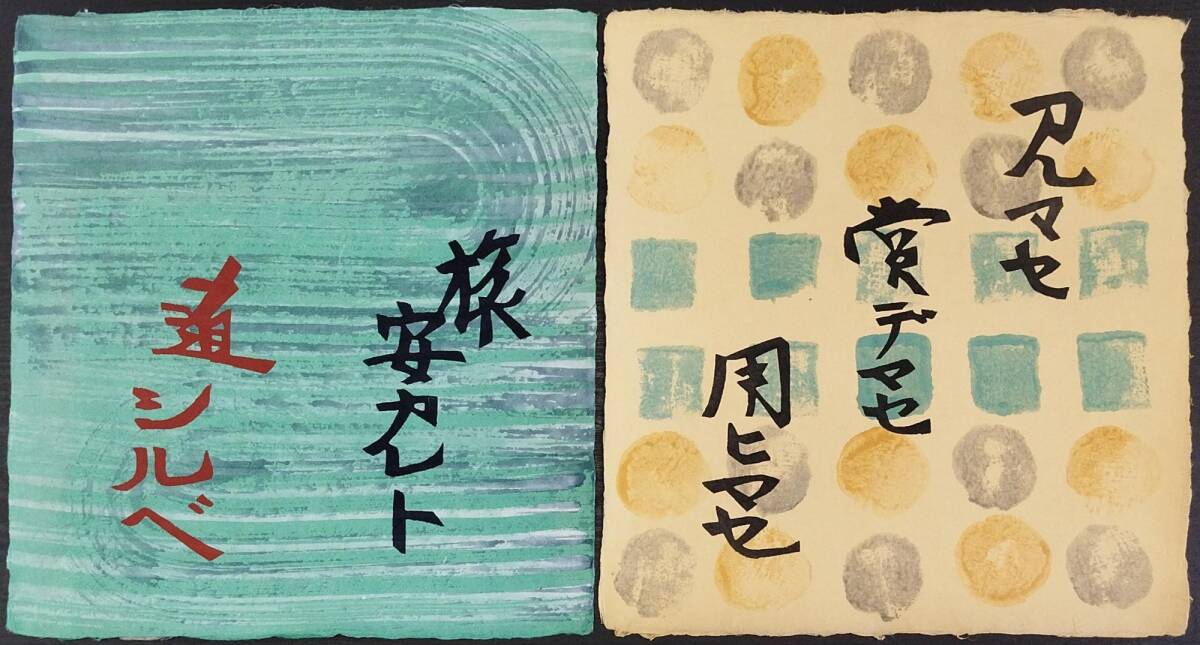 見マセ
賞デマセ
用ヒマセ
旅
安カレト
道シルベ